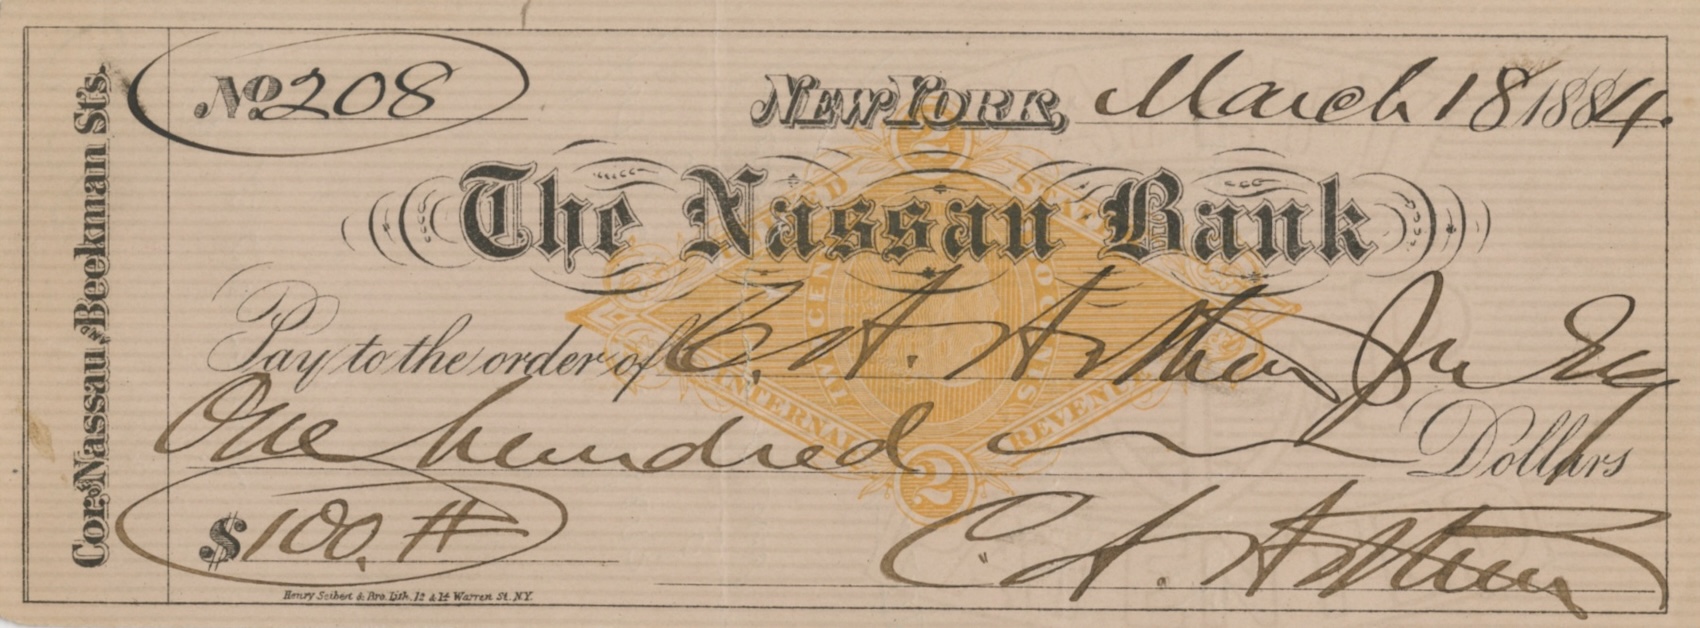 No. 208
New York, March 18 1884.
2
The Nassau Bank
UNITED STATES
Pay to the order of C. A. Arthur Jr Esq
INTERNAL REVENUE
One hundred Dollars
2
$100.#
C. A. Arthur
Henry Seibert & Bro. Lith. 12 & 14 Warren St. N.Y.
Cor. Nassau and Beekman St's.